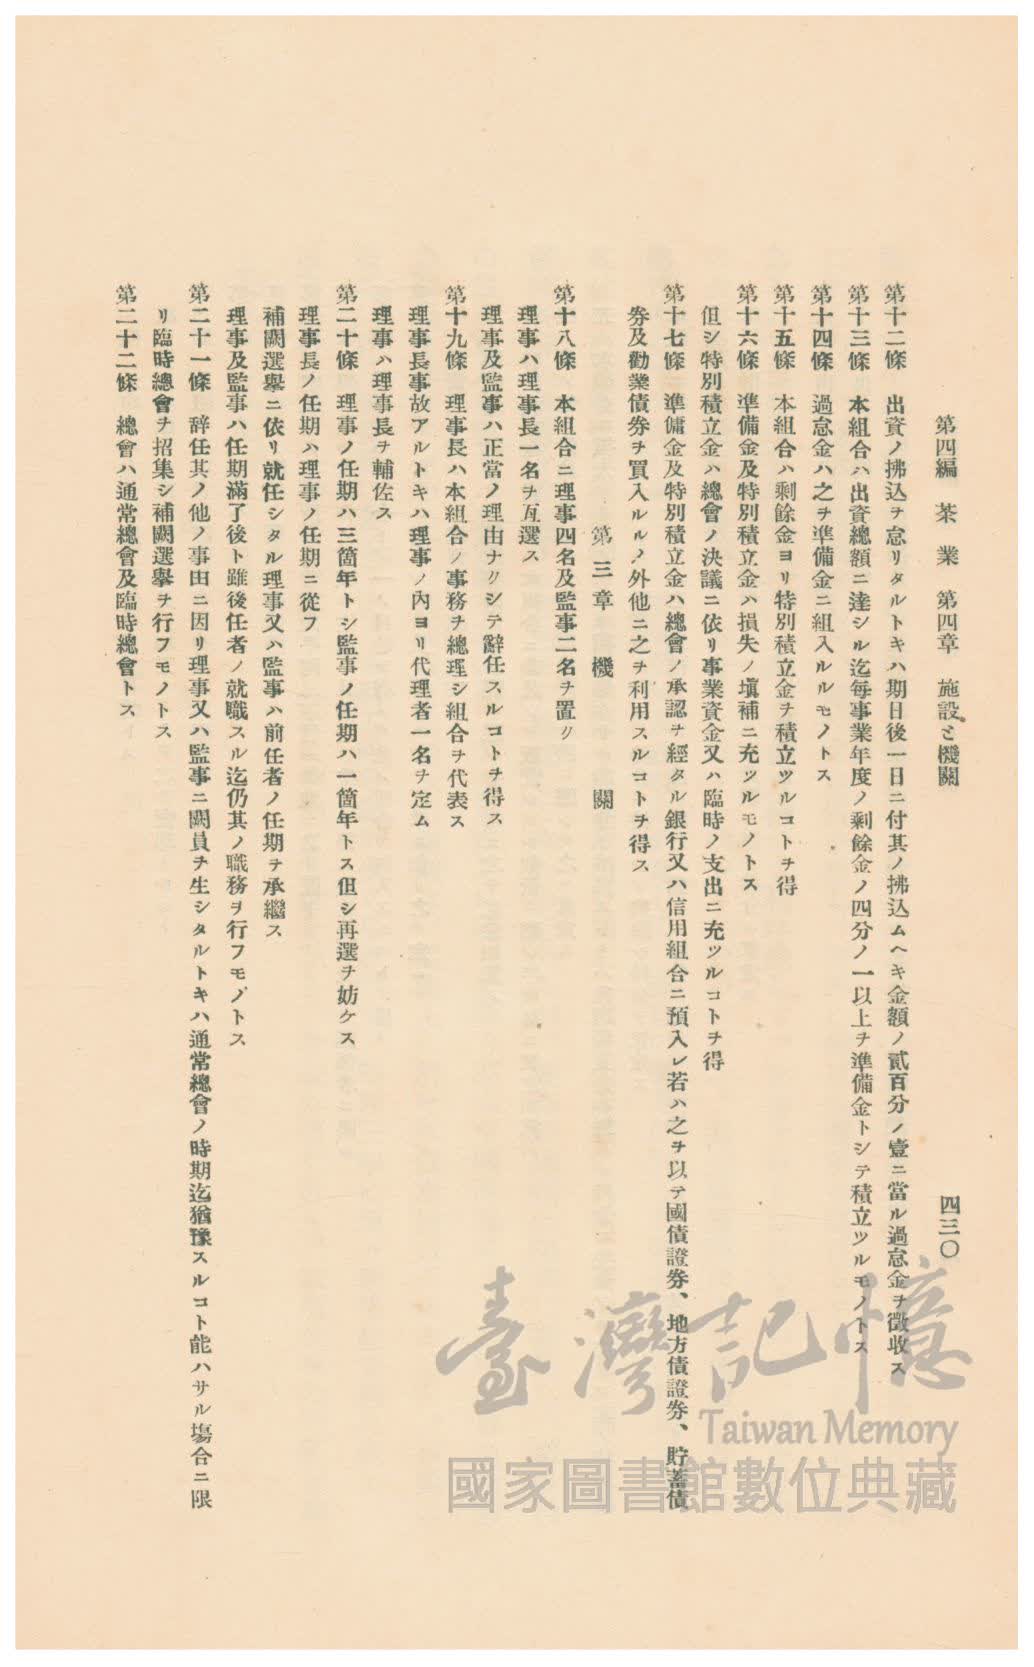 第四編 茶業 第四章 施設と機關
四三〇
第十二條 出資ノ拂込チ怠リタルトキハ期日後一日ニ付其ノ拂込ムヘキ金額ノ貳百分ノ壹ニ當ル過怠金チ徵收ス
第十三條 本組合ハ出資總額ニ達シル迄每事業年度ノ剩餘金ノ四分ノ一以上チ準備金トシテ積立ツルモノトス
第十四條 過怠金ハ之チ準備金ニ組入ルルモノトス
第十五條 本組合ハ剩餘金ヨリ特別積立金チ積立ツルコトチ得
第十六條 準備金及特別積立金ハ損失ノ塡補ニ充ツルモノトス
但シ特別積立金ハ總會ノ決議ニ依リ事業資金又ハ臨時ノ支出ニ充ツルコトチ得
第十七條 準備金及特別積立金ハ總會ノ承認チ經タル銀行又ハ信用組合ニ預入レ若ハ之チ以テ國債證券、地方債證券、貯蓄債
券及勸業債券チ買入ルルノ外他ニ之チ利用スルコトチ得ス
第三章 機關
第十八條 本組合ニ理事四名及監事二名チ置ク
理事ハ理事長一名チ互選ス
理事及監事ハ正當ノ理由ナクシテ辭任スルコトチ得ス
第十九條 理事長ハ本組合ノ事務チ總理シ組合チ代表ス
理事長事故アルトキハ理事ノ內ヨリ代理者一名チ定ム
理事ハ理事長チ輔佐ス
第二十條 理事ノ任期ハ三箇年トシ監事ノ任期ハ一箇年トス但シ再選チ妨ケス
理事長ノ任期ハ理事ノ任期ニ從フ
補闕選擧ニ依リ就任シタル理事又ハ監事ハ前任者ノ任期チ承繼ス
理事及監事ハ任期滿了後ト雖後任者ノ就職スル迄仍其ノ職務ヲ行フモノトス
第二十一條 辭任其ノ他ノ事由ニ因リ理事又ハ監事ニ闕員チ生シタルトキハ通常總會ノ時期迄猶豫スルコト能ハサル場合ニ限
リ臨時總會チ招集シ補闕選擧チ行フモノトス
第二十二條 總會ハ通常總會及臨時總會トス
臺灣記憶
Taiwan Memory
國家圖書館數位典藏